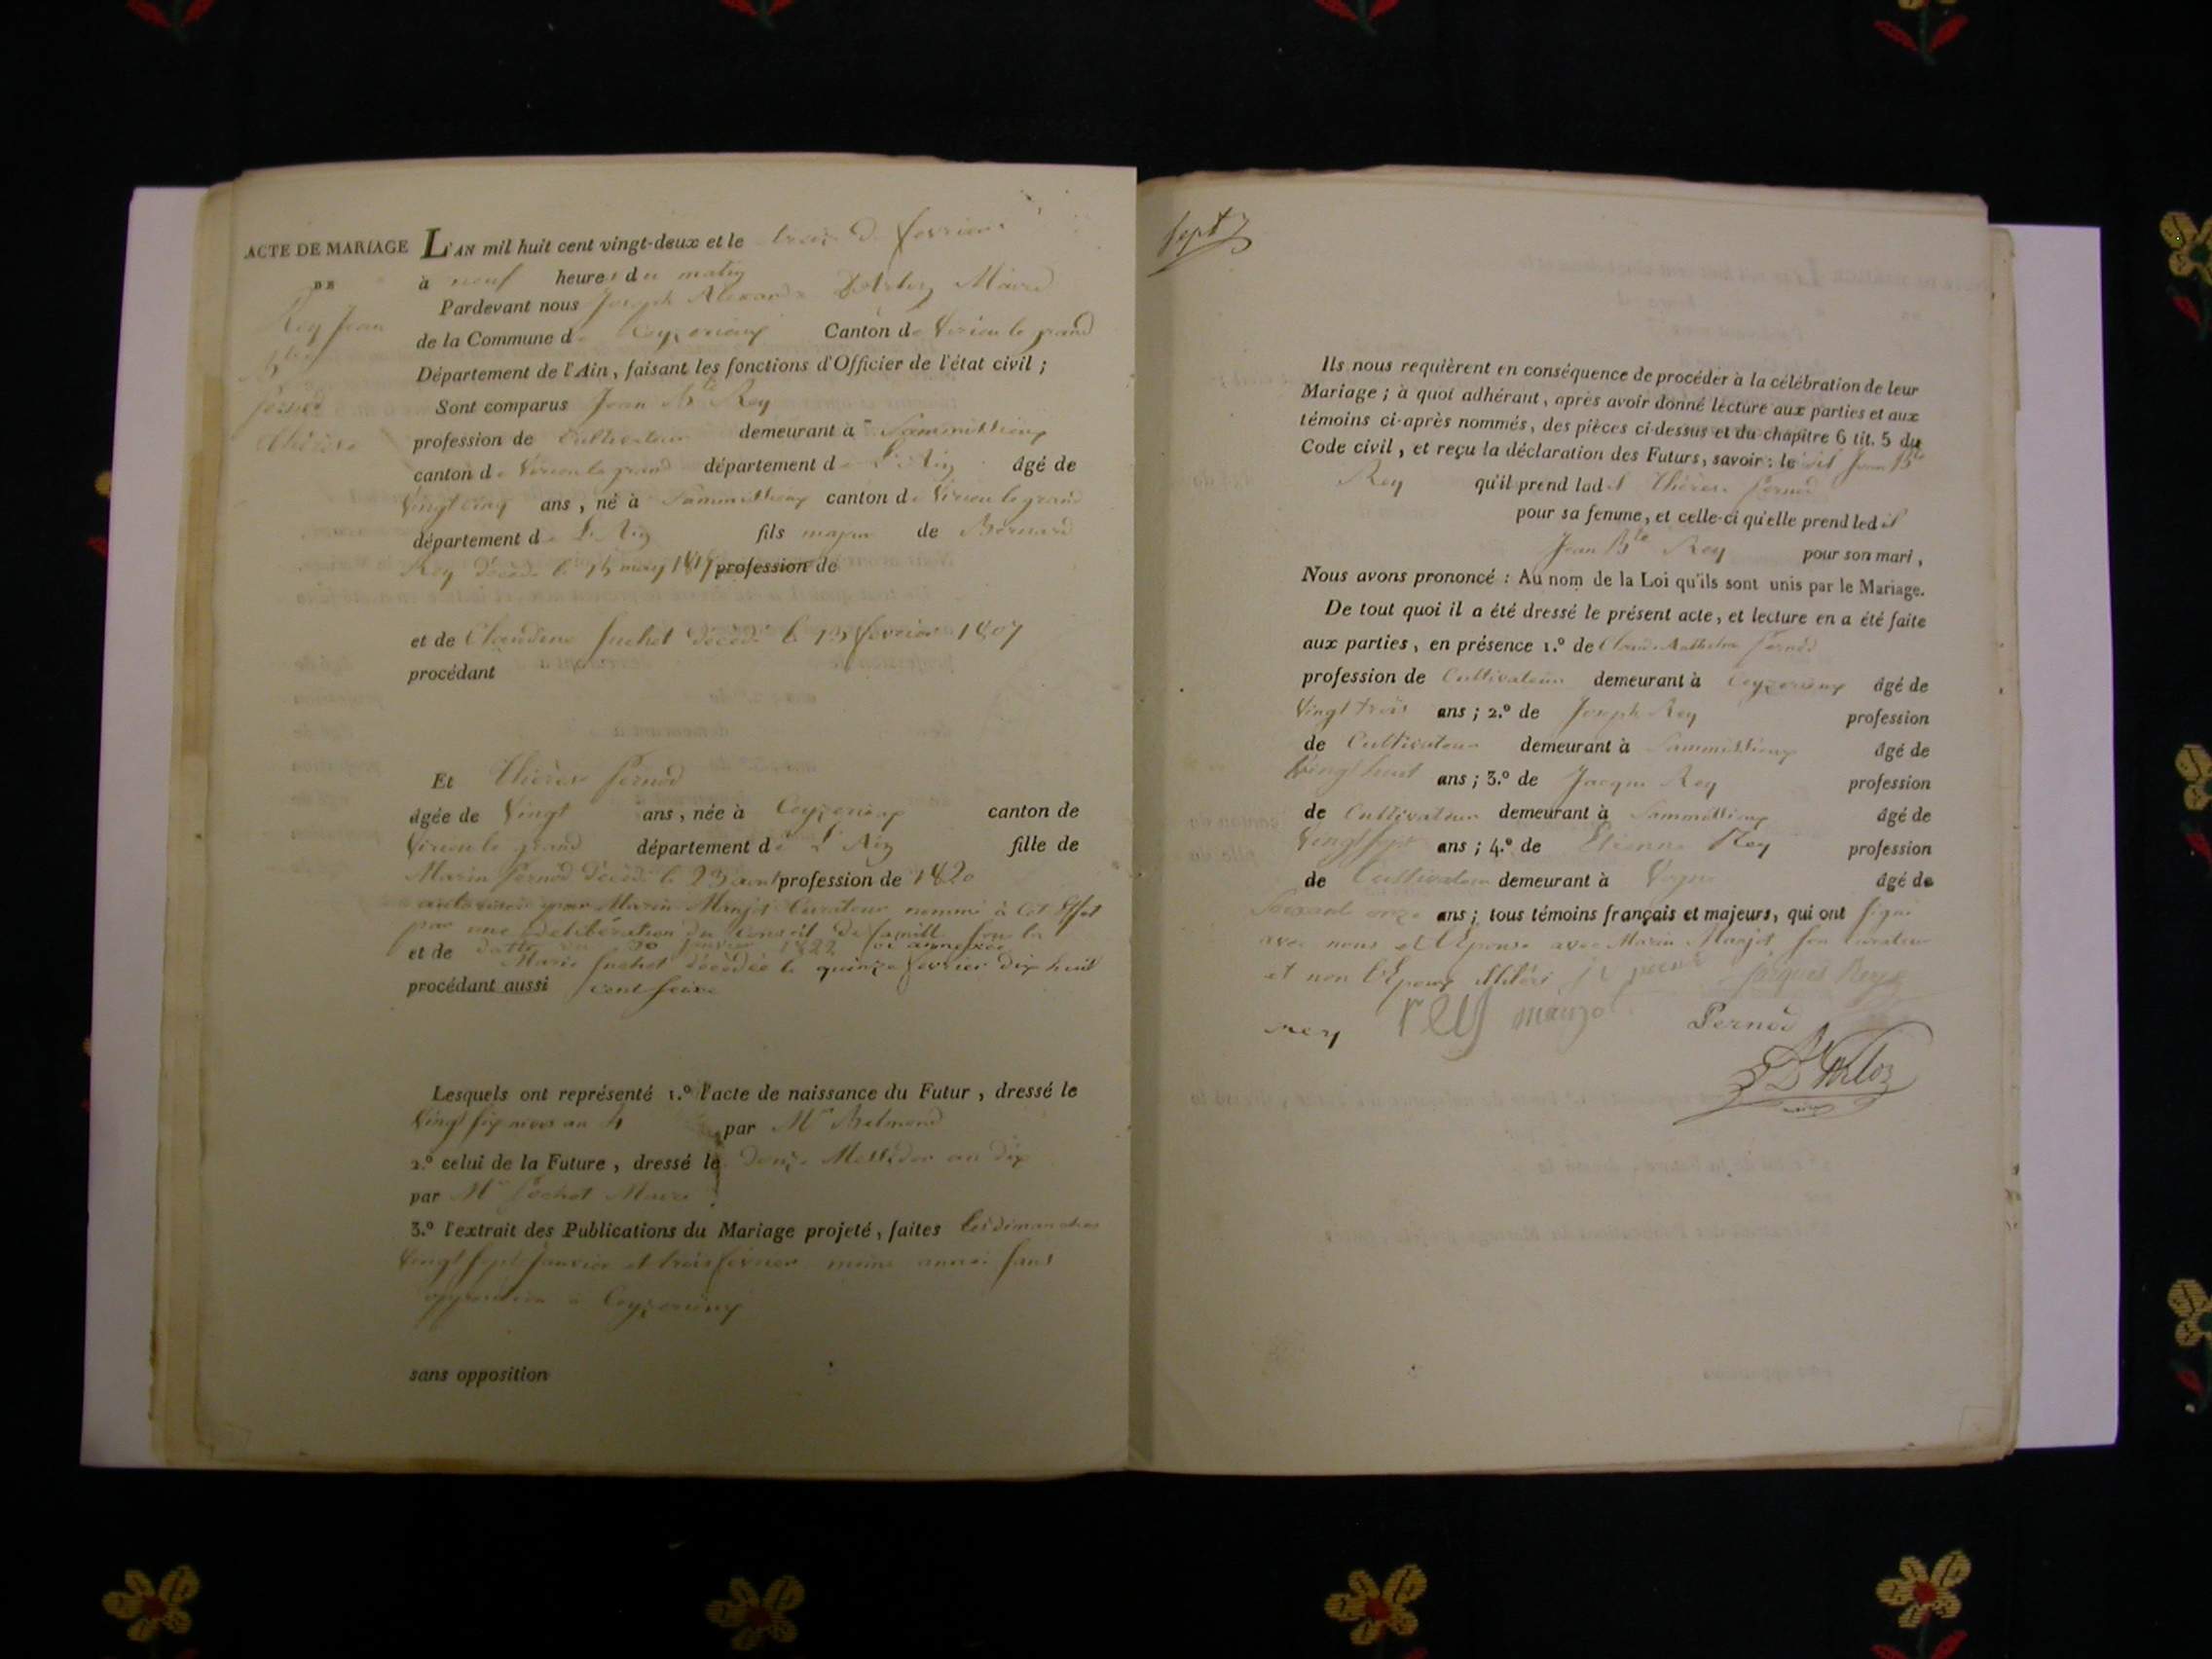 ACTE DE MARIAGE
DE
Rey Jean
Bte
Pernod
Thérèse
L'AN mil huit cent vingt-deux et le février
à neuf heures du matin
Pardevant nous Joseph Alexandre Maire
de la Commune de Ceyzerieux Canton de Virieu le grand
Département de l'Ain, faisant les fonctions d'Officier de l'état civil ;
Sont comparus Jean Bte Rey
profession de Cultivateur demeurant à
canton de Virieu le grand département de L'Ain âgé de
Vingt cinq ans, né à canton de Virieu le grand
département de L'Ain fils majeur de Bernard
Rey décédé le 15 may profession de
et de Claudine Suchet décédé le 13 février 1807
procédant
Et Thérèse Pernod
âgée de Vingt ans, née à Ceyzerieux canton de
Virieu le grand département de L'Ain fille de
Marin Pernod décédé le 23 profession de 1820
autorisée par Marin Manjot Curateur nommé à Cet Effet
par une délibération du Conseil de famille sous la
et de datte du janvier 1822 ci annexée
Marie Suchet décédée le quinze février dix huit
procédant aussi cent seize
Lesquels ont représenté 1.º l'acte de naissance du Futur, dressé le
Vingt six an 4 par Mr
2.º celui de la Future, dressé le Messidor an dix
par Mr Maire
3.º l'extrait des Publications du Mariage projeté, faites les dimanches
Vingt sept janvier et trois février même année sans
opposition à Ceyzerieux
sans opposition
sept
Ils nous requièrent en conséquence de procéder à la célébration de leur
Mariage ; à quoi adhérant, après avoir donné lecture aux parties et aux
témoins ci-après nommés, des pièces ci-dessus et du chapitre 6 tit. 5 du
Code civil, et reçu la déclaration des Futurs, savoir : le dit Jean Bte
Rey qu'il prend ladt Thérèse Pernod
pour sa femme, et celle-ci qu'elle prend ledit
Jean Bte Rey pour son mari,
Nous avons prononcé : Au nom de la Loi qu'ils sont unis par le Mariage.
De tout quoi il a été dressé le présent acte, et lecture en a été faite
aux parties, en présence 1.º de Claude Anthelme Pernod
profession de Cultivateur demeurant à Ceyzerieux âgé de
Vingt trois ans ; 2.º de Joseph Rey profession
de Cultivateur demeurant à âgé de
Vingt huit ans ; 3.º de Jacque Rey profession
de Cultivateur demeurant à âgé de
Vingt sept ans ; 4.º de Etienne Rey profession
de Cultivateur demeurant à Vogne âgé de
Soixante onze ans ; tous témoins français et majeurs, qui ont signé
avec nous et l'Epouse avec Marin Manjot son curateur
et non l'Epoux Jacques Rey
rey rey manjo Pernod